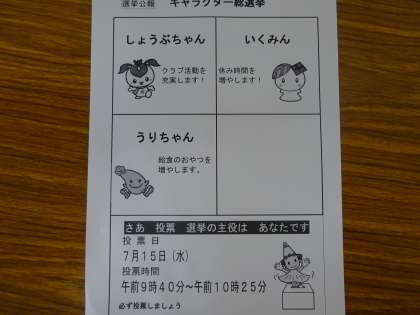 選挙公報 キャラクター総選挙
しょうぶちゃん
クラブ活動を
充実します！
いくみん
休み時間を
増やします！
うりちゃん
給食のおやつを
増やします。
さあ 投票 選挙の主役は あなたです
投票日
7月15日（水）
投票時間
午前9時40分～午前10時25分
必ず投票しましょう